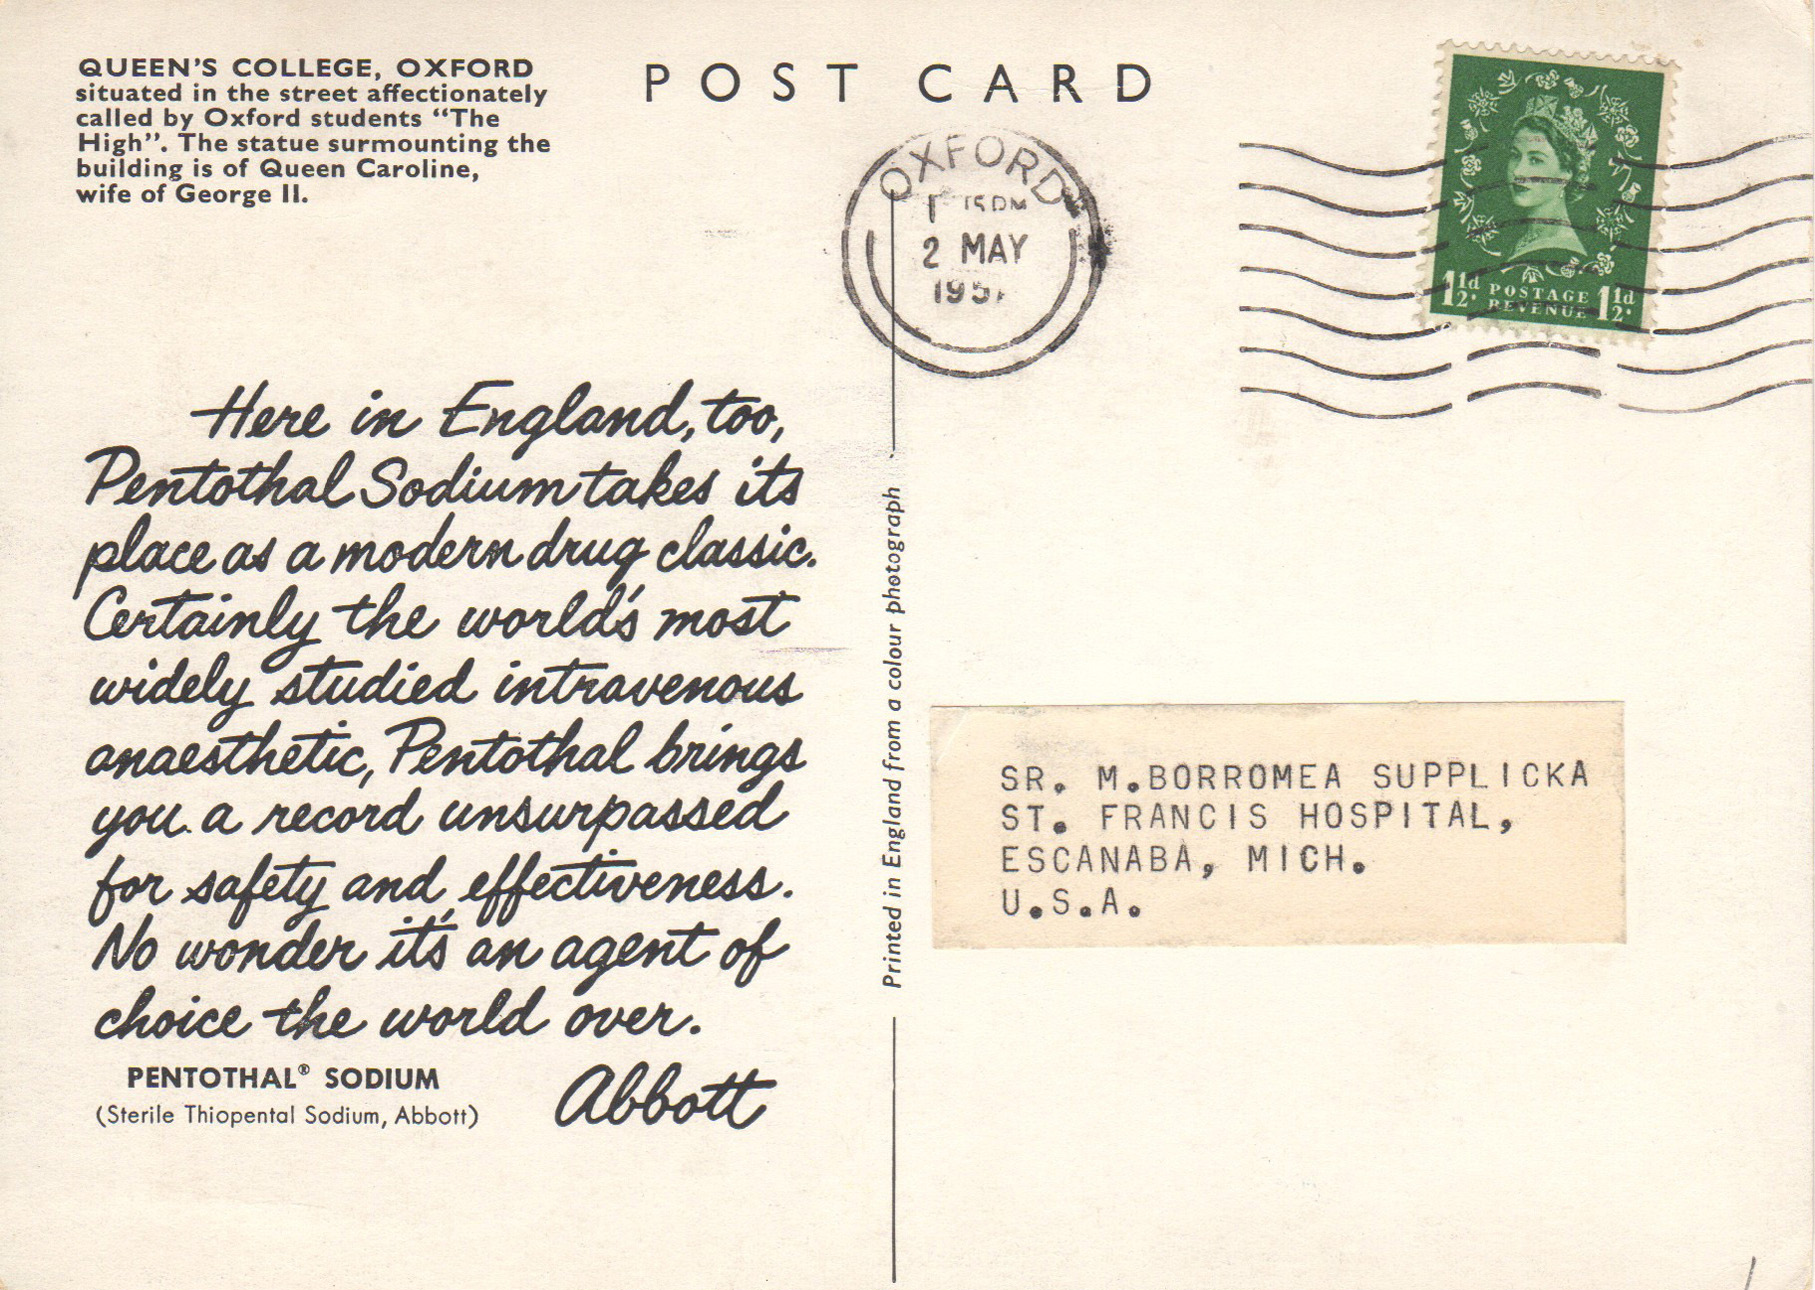 QUEEN'S COLLEGE, OXFORD
situated in the street affectionately
called by Oxford students "The
High". The statue surmounting the
building is of Queen Caroline,
wife of George II.
POST CARD
OXFORD
2 MAY
1½d POSTAGE 1½d
REVENUE
Here in England, too,
Pentothal Sodium takes its
place as a modern drug classic.
Certainly the world's most
widely studied intravenous
anaesthetic, Pentothal brings
you a record unsurpassed
for safety and effectiveness.
No wonder it's an agent of
choice the world over.
Abbott
PENTOTHAL® SODIUM
(Sterile Thiopental Sodium, Abbott)
Printed in England from a colour photograph
SR. M.BORROMEA SUPPLICKA
ST. FRANCIS HOSPITAL,
ESCANABA, MICH.
U.S.A.